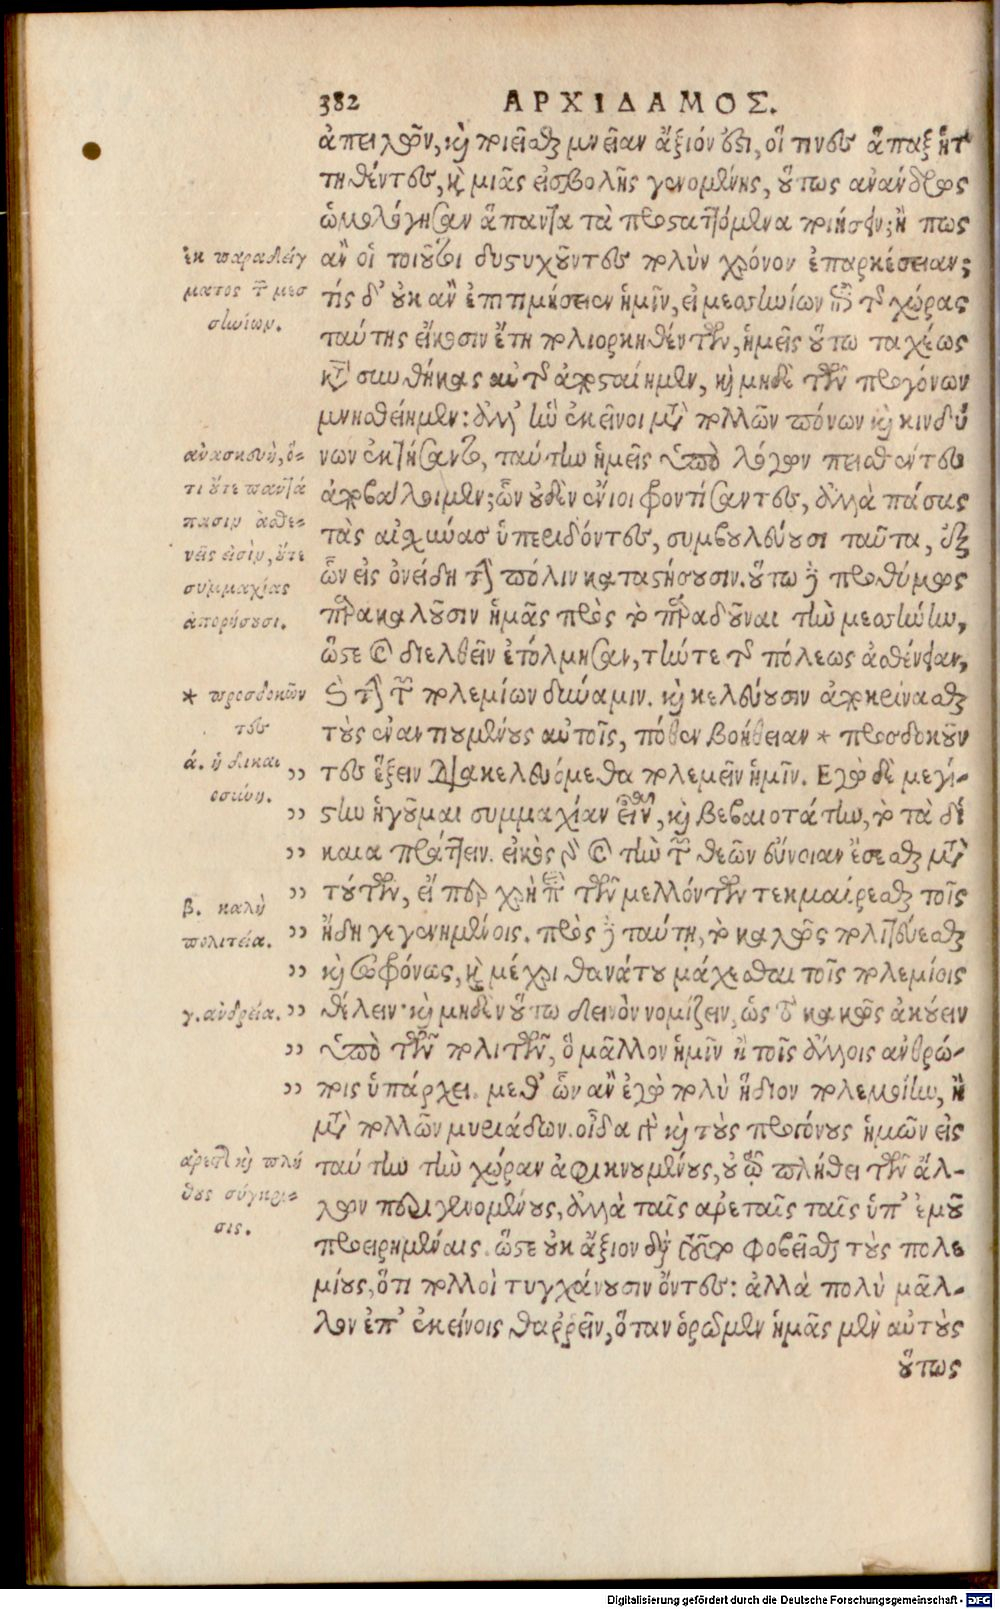 382 ΑΡΧΙΔΑΜΟΣ.
ἀπειλῶν, καὶ ποιεῖσθαι μνείαν ἄξιόν ἐστι, οἵ τινες ἅπαξ ἡτ
τηθέντες, καὶ μιᾶς εἰσβολῆς γενομένης, οὕτως ἀνάνδρως
ὡμολόγησαν ἅπαντα τὰ προσταττόμενα ποιήσειν; ἢ πως
ἐκ παραδείγ
ματος τῶν μεσ
σηνίων.
ἂν οἱ τοιοῦτοι δυστυχοῦντες πολὺν χρόνον ἐπαρκέσειαν;
τίς δ' οὐκ ἂν ἐπιτιμήσειεν ἡμῖν, εἰ μεσσηνίων ὑπὲρ τῆς χώρας
ταύτης εἴκοσιν ἔτη πολιορκηθέντων, ἡμεῖς οὕτω ταχέως
κατὰ συνθήκας αὐτῆς ἀποσταίημεν, καὶ μηδὲ τῶν προγόνων
μνησθείημεν: ἀλλ' ἣν ἐκεῖνοι μετὰ πολλῶν πόνων καὶ κινδύ
ἀνασκευὴ, ὅ-
τι οὔτε παντά
πασιν ἀσθε-
νεῖς εἰσὶν, οὔτε
συμμαχίας
ἀπορήσουσι.
νων ἐκτήσαντο, ταύτην ἡμεῖς ὑπὸ λόγων πεισθέντες
ἀποβάλοιμεν; ὧν οὐδὲν ἔνιοι φροντίσαντες, ἀλλὰ πάσας
τὰς αἰσχύνας ὑπεριδόντες, συμβουλεύουσι ταῦτα, ἐξ
ὧν εἰς ὀνείδη τὴν πόλιν καταστήσουσιν. οὕτω δὲ προθύμως
παρακαλοῦσιν ἡμᾶς πρὸς τὸ παραδοῦναι τὴν μεσσήνην,
ὥστε καὶ διελθεῖν ἐτόλμησαν, τήν τε τῆς πόλεως ἀσθένειαν,
* προσδοκῶν
τες
καὶ τὴν τῶν πολεμίων δύναμιν. καὶ κελεύουσιν ἀποκρίνασθαι
τοὺς ἐναντιουμένους αὐτοῖς, πόθεν βοήθειαν * προσδοκοῦν
ά. ἡ δικαι
οσύνη.
,, τες ἥξειν διακελευόμεθα πολεμεῖν ἡμῖν. Εγὼ δὲ μεγί-
,, στην ἡγοῦμαι συμμαχίαν εἶναι, καὶ βεβαιοτάτην, τὸ τὰ δί
,, καια πράττειν. εἰκὸς γὰρ καὶ τὴν τῶν θεῶν εὔνοιαν ἔσεσθαι μετὰ
,, τούτων, εἴ περ χρὴ περὶ τῶν μελλόντων τεκμαίρεσθαι τοῖς
β. καλὴ
πολιτεία.
,, ἤδη γεγενημένοις. πρὸς δὲ ταύτῃ, τὸ καλῶς πολιτεύεσθαι
,, καὶ σωφρόνως, καὶ μέχρι θανάτου μάχεσθαι τοῖς πολεμίοις
γ. ἀνδρεία.
,, θέλειν· καὶ μηδὲν οὕτω δεινὸν νομίζειν, ὡς τὸ κακῶς ἀκούειν
,, ὑπὸ τῶν πολιτῶν, ὃ μᾶλλον ἡμῖν ἢ τοῖς ἄλλοις ἀνθρώ-
,, ποις ὑπάρχει. μεθ' ὧν ἂν ἐγὼ πολὺ ἥδιον πολεμοίην, ἢ
μετὰ πολλῶν μυριάδων. οἶδα γὰρ καὶ τοὺς προγόνους ἡμῶν εἰς
ἀρετῆς καὶ πλή
θους σύγκρι-
σις.
ταύτην τὴν χώραν ἀφικνουμένους, οὐ τῷ πλήθει τῶν ἄλ-
λων περιγενομένους, ἀλλὰ ταῖς ἀρεταῖς ταῖς ὑπ' ἐμοῦ
προειρημέναις. ὥστε οὐκ ἄξιον διὰ τοῦτο φοβεῖσθαι τοὺς πολε
μίους, ὅτι πολλοὶ τυγχάνουσιν ὄντες: ἀλλὰ πολὺ μᾶλ-
λον ἐπ' ἐκείνοις θαῤῥεῖν, ὅταν ὁρῶμεν ἡμᾶς μὲν αὐτοὺς
οὕτως
Digitalisierung gefördert durch die Deutsche Forschungsgemeinschaft - DFG